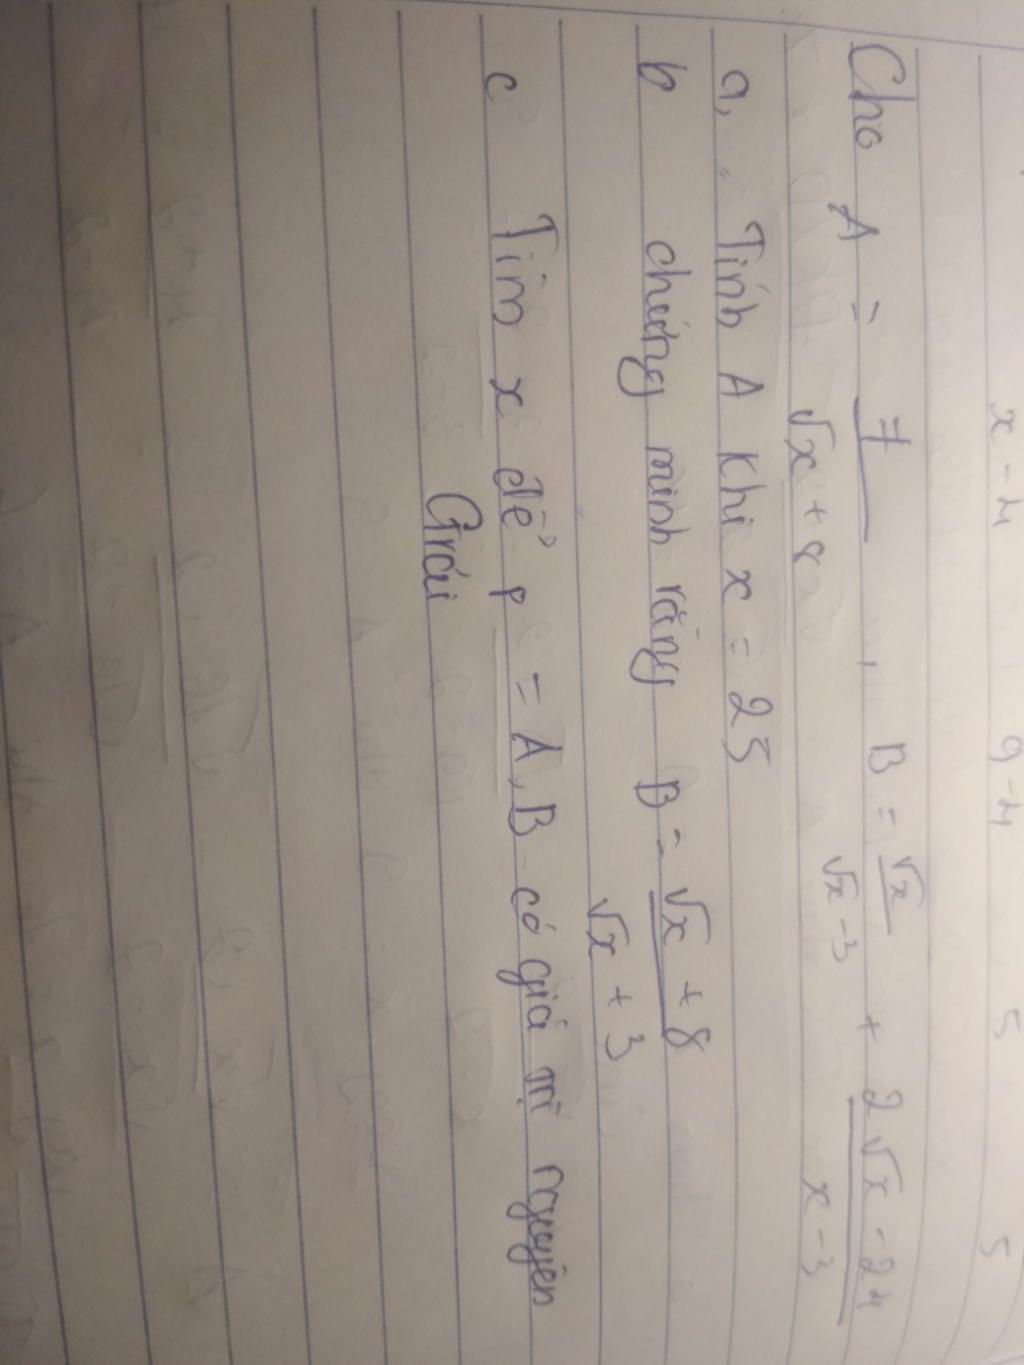 x - 4 9 - 4 5 5
Cho A = 7 / √x + 8 , B = √x / √x - 3 + 2√x - 24 / x - 3
a, Tính A khi x = 25
b chứng minh rằng B = √x + 8 / √x + 3
c Tìm x để P = A, B có giá trị nguyên
Giải